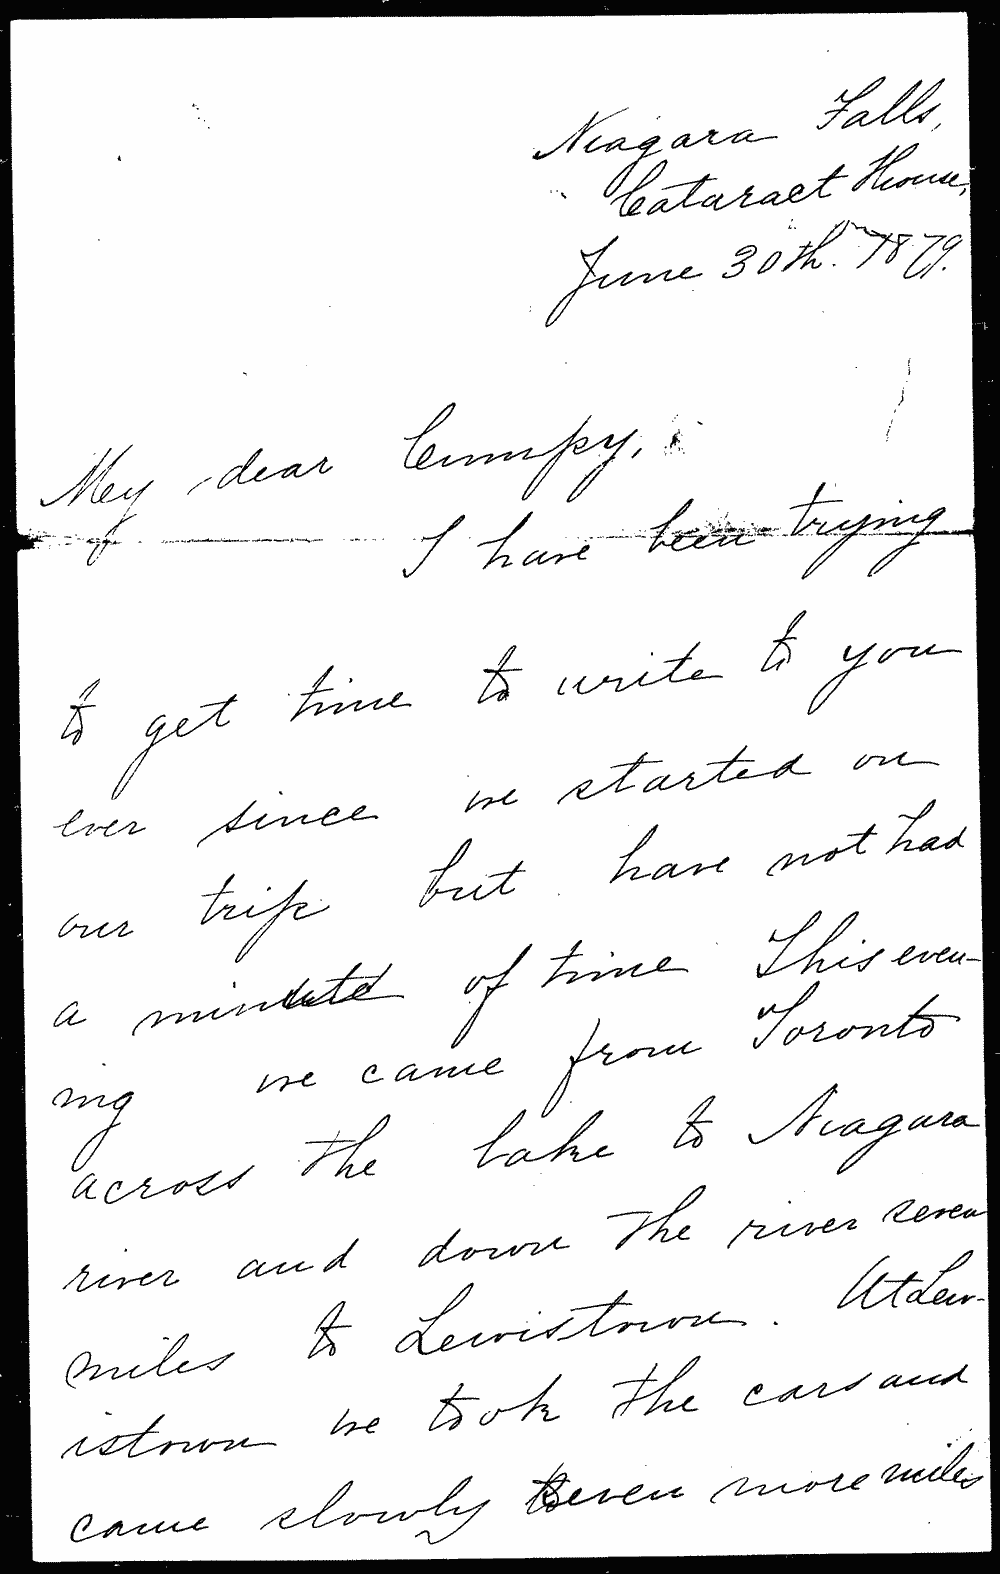 Niagara Falls,
Cataract House,
June 30th. 1879.
My dear Crumpy,
I have been trying
to get time to write to you
ever since we started on
our trip but have not had
a minute of time This even-
ing we came from Toronto
across the lake to Niagara
river and down the river seven
miles to Lewistown. At Lew-
istown we took the cars and
came slowly seven more miles